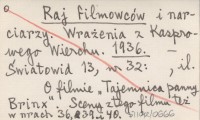 Raj filmowców i nar-
ciarzy. Wrażenia z Kaspro-
wego Wierchu. 1936. —
Światowid 13, nr 32: , il.
O filmie „Tajemnica panny
Brinx". Sceny z tego filmu też
w nrach 36, 39 i 40.